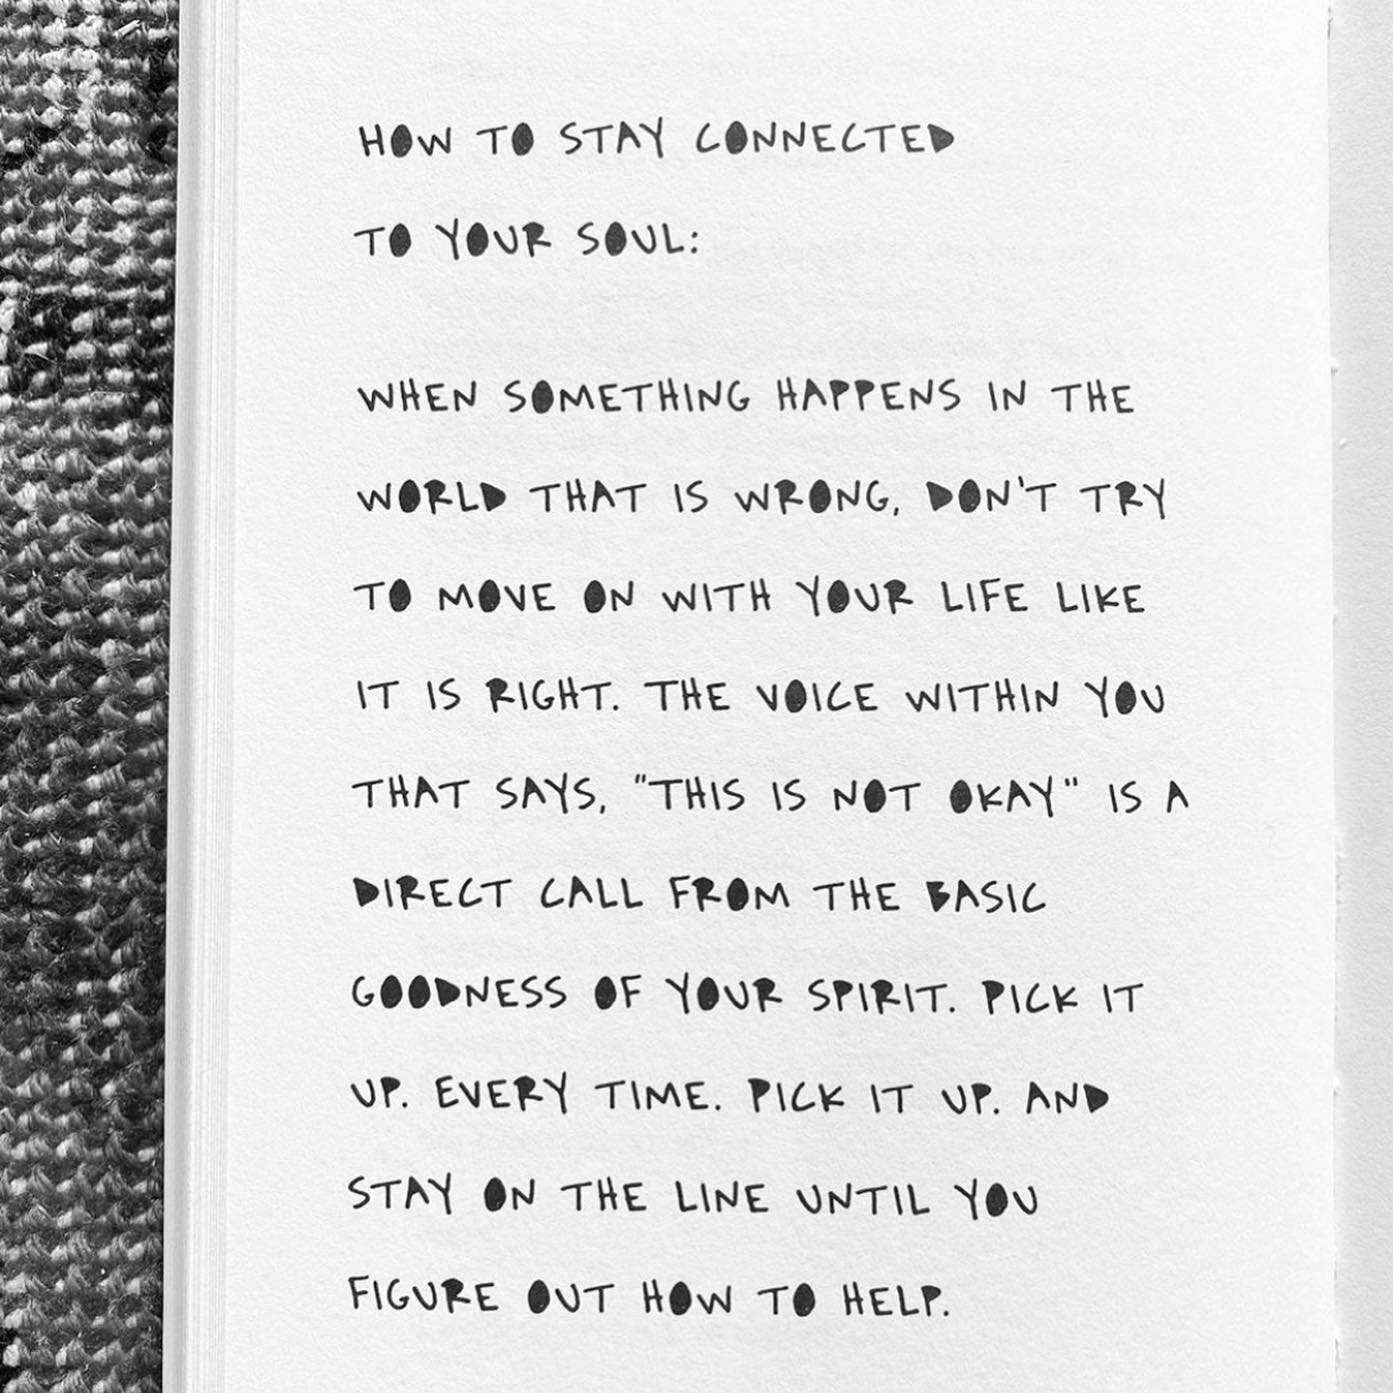 HOW TO STAY CONNECTED
TO YOUR SOUL:
WHEN SOMETHING HAPPENS IN THE
WORLD THAT IS WRONG, DON'T TRY
TO MOVE ON WITH YOUR LIFE LIKE
IT IS RIGHT. THE VOICE WITHIN YOU
THAT SAYS, "THIS IS NOT OKAY" IS A
DIRECT CALL FROM THE BASIC
GOODNESS OF YOUR SPIRIT. PICK IT
UP. EVERY TIME. PICK IT UP. AND
STAY ON THE LINE UNTIL YOU
FIGURE OUT HOW TO HELP.